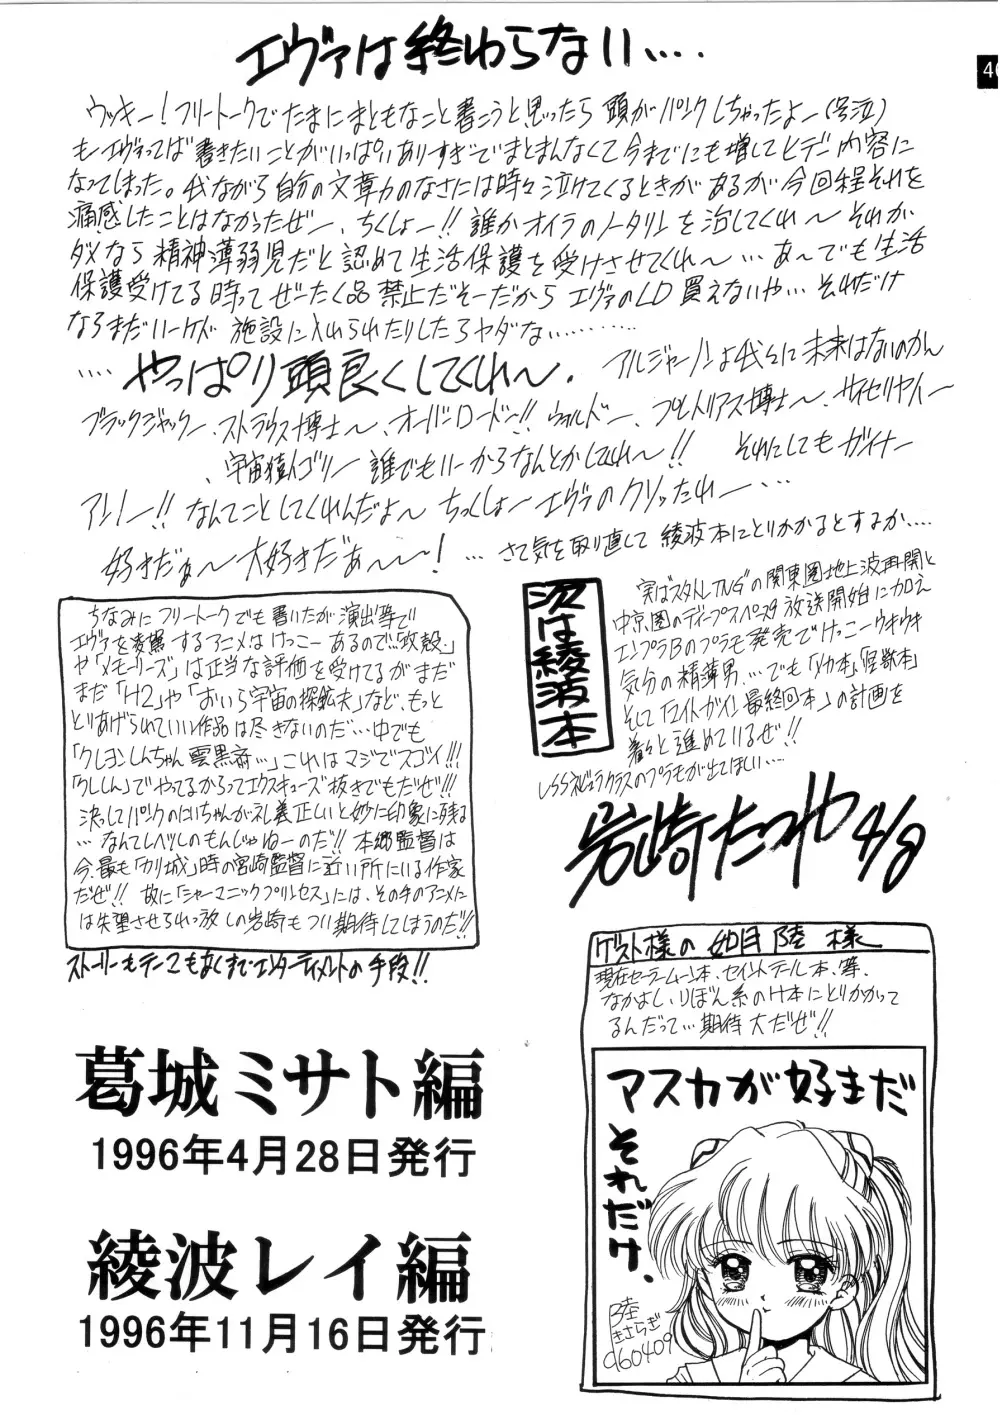 エヴァは終わらない….
ウッキー！フリートークでたまにまともなこと書こうと思ったら頭がパンクしちゃったよー(号泣)
もーエヴァってば書きたいことがいっぱいありすぎでまとまんなくて今までにも増してヒデー内容に
なってしまった。我ながら自分の文章力のなさには時々泣けてくるときがあるが今回程それを
痛感したことはなかったぜー、ちくしょー!!誰かオイラのノータリンを治してくれ〜それが
ダメなら精神薄弱児だと認めて生活保護を受けさせてくれ〜…あ〜でも生活
保護受けてる時ってぜーたく品禁止だそーだからエヴァのLD買えないや…それだけ
ならまだいーけど施設に入れられたりしたらヤダな…………
….やっぱり頭良くしてくれ〜.アルジャーノンよ我々に未来はないのかん
ブラックジャックー、ストラウス博士〜、オーバーロード〜!!ウォルドー、
、宇宙猿人ゴリー誰でもいーからなんとかしてくれ〜!!それにしてもガイナー
アンノー!!なんてことしてくれんだよ〜ちっくしょーエヴァのクソッたれー…
好きだぁ〜大好きだぁ〜〜!…さて気を取り直して綾波本にとりかかるとするか….
ちなみにフリートークでも書いたが演出等で
エヴァを凌駕するアニメはけっこーあるので…「攻殻」
や「メモリーズ」は正当な評価を受けてるがまだ
まだ「H2」や「おいら宇宙の探鉱夫」など、もっと
とりあげられていい作品は尽きないのだ…中でも
「クレヨンしんちゃん雲黒斎…」これはマジでスゴイ!!!
「クレしん」でやってるからってエクスキューズ抜きでもだぜ!!!
決してパンクのロイちゃんが礼義正しいと妙に印象に残る
…なんてレベルのもんじゃねーのだ!!本郷監督は
今、最も「カリ城」時の宮崎監督に近い所にいる作家
だぜ!!故に「シャーマニックプリンセス」には、その手のアニメに
は失望させられっ放しの岩崎もつい期待してしまうのだ!!
ストーリーもテーマもなくまでエンターティメントの手段!!
次は綾波本
実はスタトレTNGの関東圏地上波再開と
中京圏のディープスペース9放送開始に加え
エンプラBのプラモ発売でけっこーウキウキ
気分の精薄男…でも「メカ本」「怪獣本」
そして「マイトガイン最終回本」の計画を
着々と進めているぜ!!
のプラモが出てほしい…
岩崎たつや4/8
ゲスト様の如月陸様
現在セーラームーン本、セイントテール本、等、
なかよし、りぼん系のH本にとりかかって
るんだって…期待大だぜ!!
マスカが好きだ
それだけ.
陸
きさらぎ
960409
葛城ミサト編
1996年4月28日発行
綾波レイ編
1996年11月16日発行